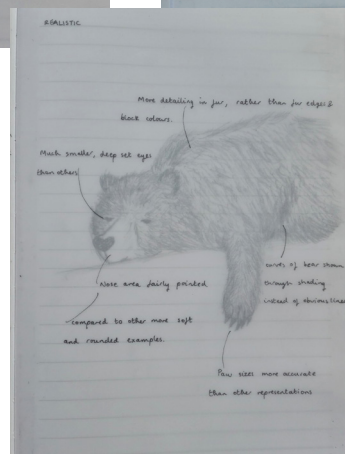 REALISTIC
More detailing in fur, rather than fur edges &
block colours.
Much smaller, deep set eyes
than others
Nose area fairly pointed
compared to other more soft
and rounded examples.
curves of bear shown
through shading
instead of obvious lines
Paw sizes more accurate
than other representations